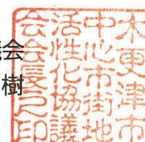 会
樹
木更津市
中心市街地
活性化協議
会会長之印